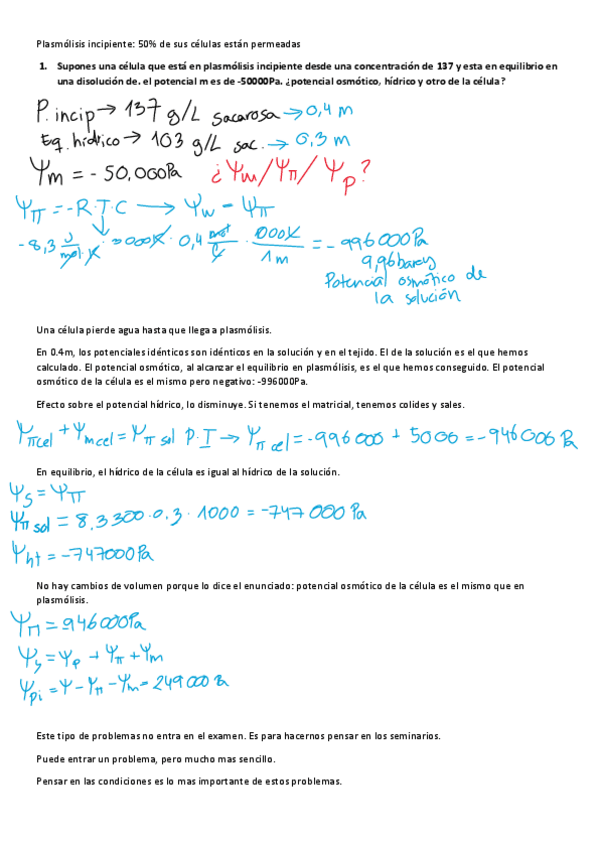 Plasmólisis incipiente: 50% de sus células están permeadas
1. Supones una célula que está en plasmólisis incipiente desde una concentración de 137 y esta en equilibrio en
una disolución de. el potencial m es de -50000Pa. ¿potencial osmótico, hídrico y otro de la célula?
P. incip → 137 g/L sacarosa → 0,4 m
Eq. hídrico → 103 g/L sac. → 0,3 m
Ψm = - 50,000Pa ¿Ψw/Ψπ/Ψp?
Ψπ = -R·T·C → Ψw = Ψπ
-8,3 J/mol·K · 3000K · 0,4 mol/L · 1000L/1m = - 996000Pa
9,96 bares
Potencial osmótico de
la solución
Una célula pierde agua hasta que llega a plasmólisis.
En 0.4m, los potenciales idénticos son idénticos en la solución y en el tejido. El de la solución es el que hemos
calculado. El potencial osmótico, al alcanzar el equilibrio en plasmólisis, es el que hemos conseguido. El potencial
osmótico de la célula es el mismo pero negativo: -996000Pa.
Efecto sobre el potencial hídrico, lo disminuye. Si tenemos el matricial, tenemos colides y sales.
Ψπcel + Ψmcel = Ψπ sol P.I → Ψπ cel = -996000 + 5000 = -946000 Pa
En equilibrio, el hídrico de la célula es igual al hídrico de la solución.
Ψs = Ψπ
Ψπ sol = 8,3 300·0,3·1000 = -747000 Pa
Ψht = -747000Pa
No hay cambios de volumen porque lo dice el enunciado: potencial osmótico de la célula es el mismo que en
plasmólisis.
Ψπ = -946000Pa
Ψs = Ψp + Ψπ + Ψm
Ψpi = Ψ - Ψπ - Ψm = 249000 Pa
Este tipo de problemas no entra en el examen. Es para hacernos pensar en los seminarios.
Puede entrar un problema, pero mucho mas sencillo.
Pensar en las condiciones es lo mas importante de estos problemas.